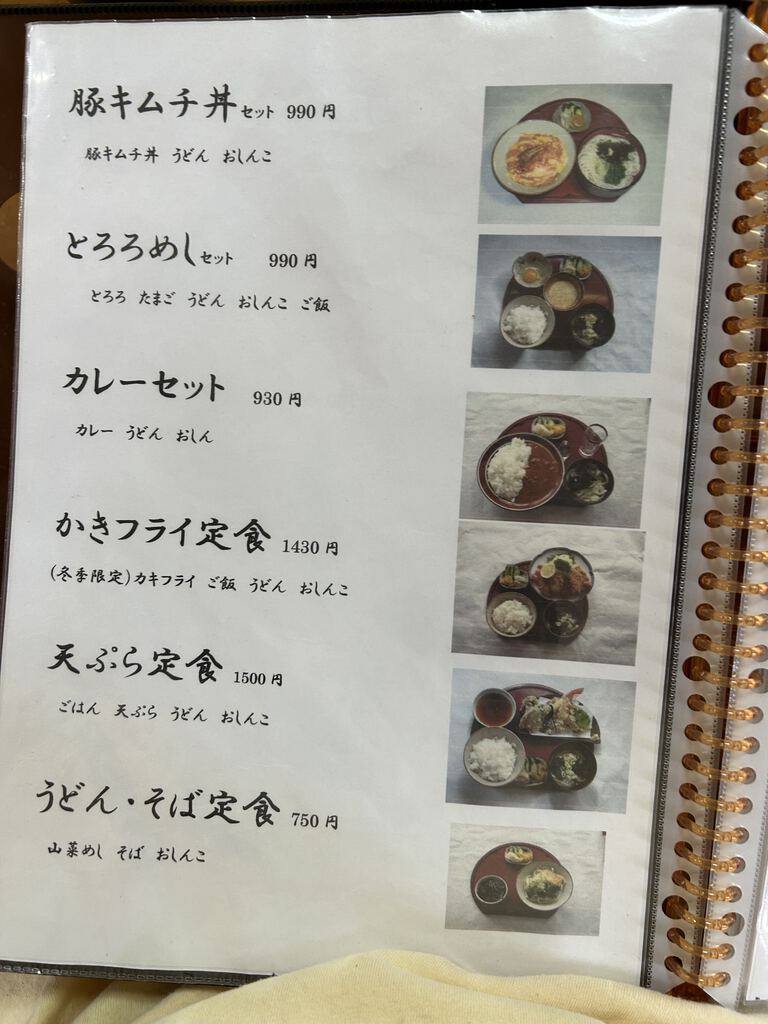 豚キムチ丼セット 990円
豚キムチ丼 うどん おしんこ
とろろめしセット 990円
とろろ たまご うどん おしんこ ご飯
カレーセット 930円
カレー うどん おしん
かきフライ定食 1430円
(冬季限定)カキフライ ご飯 うどん おしんこ
天ぷら定食 1500円
ごはん 天ぷら うどん おしんこ
うどん・そば定食 750円
山菜めし そば おしんこ